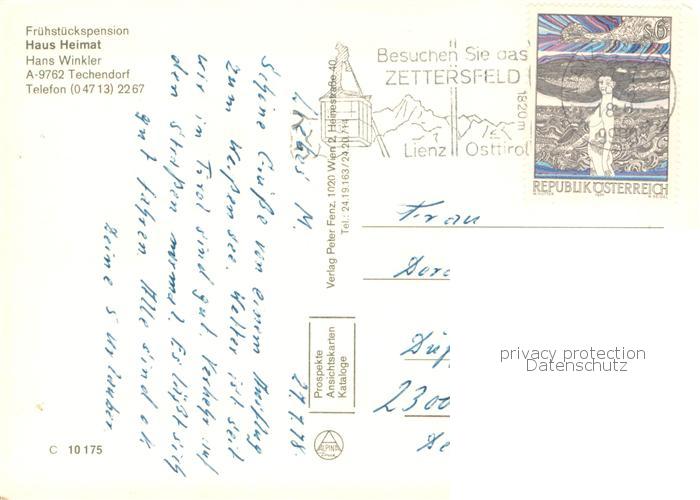 Frühstückspension
Haus Heimat
Hans Winkler
A-9762 Techendorf
Telefon (04713) 2267
Besuchen Sie das
ZETTERSFELD
1820m
Lienz Osttirol
s6
REPUBLIK ÖSTERREICH
Verlag Peter Fenz, 1020 Wien 2, Heinestraße 40
Tel.: 24 19 163/24 20 714
Prospekte
Ansichtskarten
Kataloge
ALPINA
C 10 175
27.7.78.
M.
Schöne Grüße von einem Ausflug
zum Weißensee. Wetter ist seit
wir in Tirol sind gut. Verkehr auf
den Straßen normal. Es läßt sich
gut fahren. Alle sind ok
Deine 5 Urlauber.
Frau
2300
privacy protection
Datenschutz